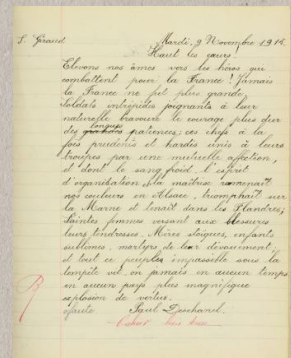 S. Giraud Mardi, 9 Novembre 1915
Haut les cœurs!
Elevons nos âmes vers les héros qui
combattent pour la France! Jamais
la France ne fut plus grande,
Soldats intrépides joignants à leur
naturelle bravoure le courage plus dur
des longues patiences, ces chefs à la
fois prudents et hardis unis à leurs
troupes par une mutuelle affection,
et dont le sang froid, l'esprit
d'organisation, la maîtrise ramenait
nos couleurs en Alsace, triomphait sur
la Marne et tenait dans les Flandres;
Saintes femmes versant aux blessures
leurs tendresses. Mères stoïques, enfants
sublimes, martyrs de leur dévouement
et tout ce peuple impassible sous la
tempête vit on jamais en aucun temps
en aucun pays plus magnifique
explosion de vertus.
Paul Deschanel.